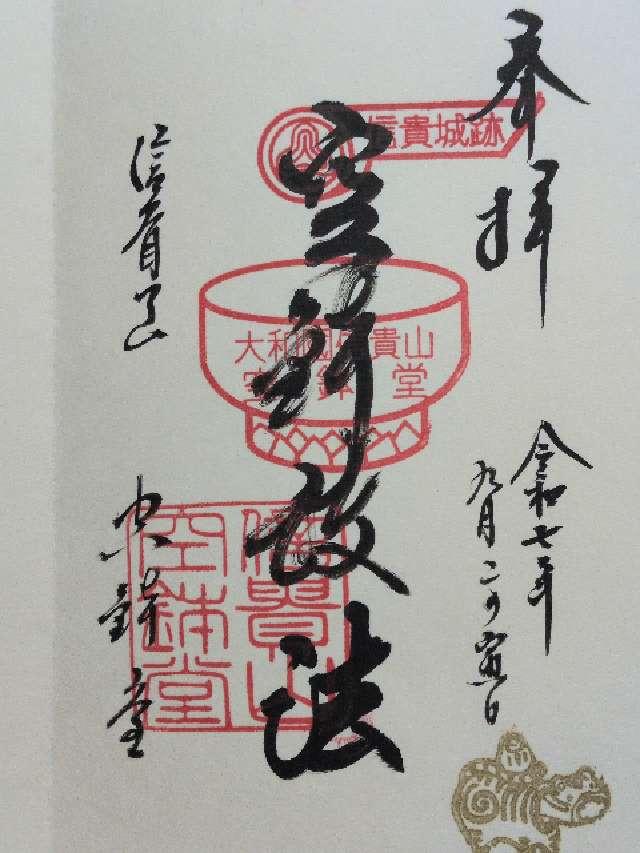 奉拝
令和七年
九月二の寅日
信貴城跡
空鉢護法
大和國信貴山
空鉢堂
信貴山
空鉢堂
信貴山
空鉢堂